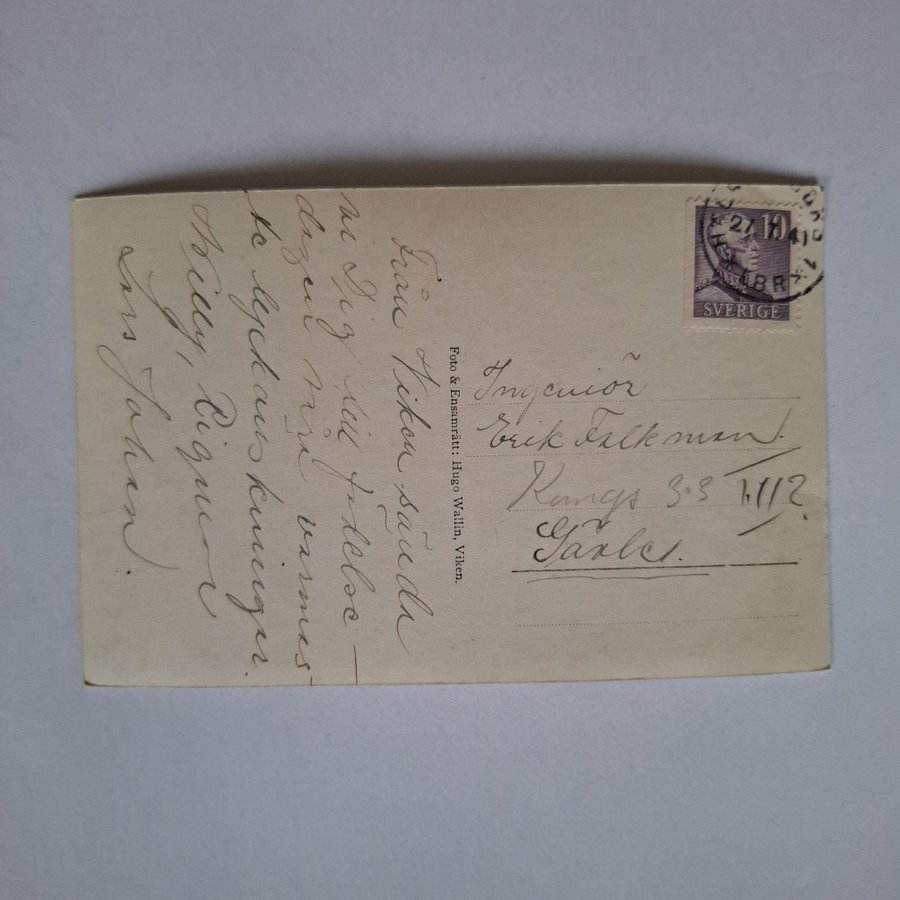 Från Viken sända
vi Dig till födelse-
dagen våra varmas-
te lyckönskningar.
Willy, Signer
Lars Johan.
Foto & Ensamrätt: Hugo Wallin, Viken.
10
27 41
SVERIGE
Ingeniör
Erik Falkman.
Kungs 33
Gävle.